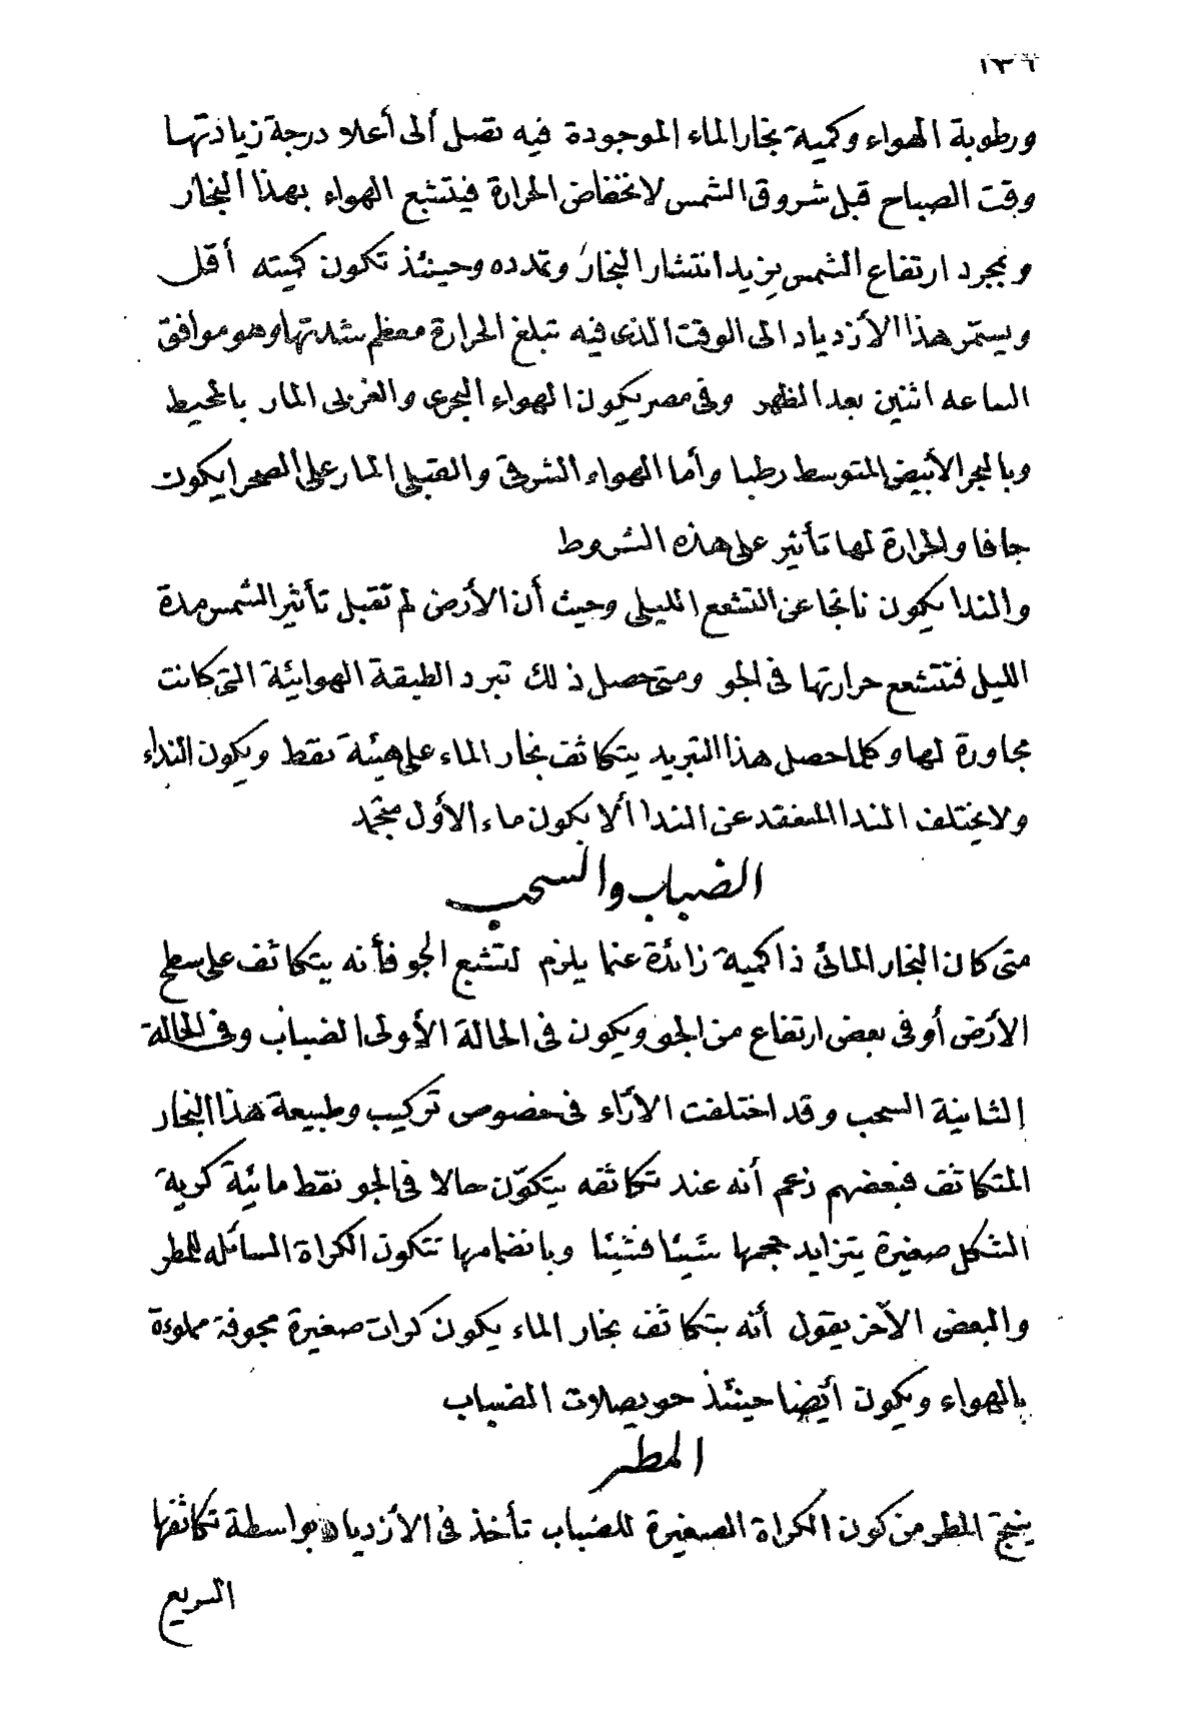 ١٣٦
ورطوبة الهواء وكمية بخار الماء الموجودة فيه تصل ألى أعلا درجة زيادتها
وقت الصباح قبل شروق الشمس لانخفاض الحرارة فيتشبع الهواء بهذا البخار
وبمجرد ارتفاع الشمس يزيد انتشار البخار وتمدده وحينئذ تكون كميته أقل
ويستمر هذا الأزدياد الى الوقت الذى فيه تبلغ الحرارة معظم شدتها وهو موافق
الساعه اثنين بعد الظهر وفى مصر يكون الهواء البحرى والغربى المار بالمحيط
وبالبحر الأبيض المتوسط رطبا وأما الهواء الشرقى والقبلى المار على الصحرا يكون
جافا والحرارة لها تأثير على هذه الشروط
والندا يكون ناتجا عن التشعع الليلى وحيث أن الأرض لم تقبل تأثير الشمس مدة
الليل فتتشعع حرارتها فى الجو ومتى حصل ذلك تبرد الطبقة الهوائية التى كانت
مجاورة لها وكلما حصل هذا التبريد يتكاثف بخار الماء على هيئة نقط ويكون النداء
ولا يختلف الندا المنعقد عن الندا ألا بكون ماء الأول متجمد
الضباب والسحب
متى كان البخار المائى ذا كمية زائدة عما يلزم لتشبع الجو فأنه يتكاثف على سطح
الأرض أو فى بعض ارتفاع من الجو ويكون فى الحالة الأولى الضباب وفى الحالة
الثانية السحب وقد اختلفت الأراء فى خصوص تركيب وطبيعة هذا البخار
المتكاثف فبعضهم زعم أنه عند تكاثفه يتكوّن حالا فى الجو نقط مائية كرية
الشكل صغيرة يتزايد حجمها شيئا فشيئا وبانضمامها تتكون الكراة السائله للمطر
والبعض الآخر يقول أنه بتكاثف بخار الماء يكون كرات صغيرة مجوفة مملوءة
بالهواء ويكون أيضا حينئذ حويصلات الضباب
المطر
ينتج المطر من كون الكراة الصغيرة للضباب تأخذ فى الأزدياد بواسطة تكاثفها
السريع